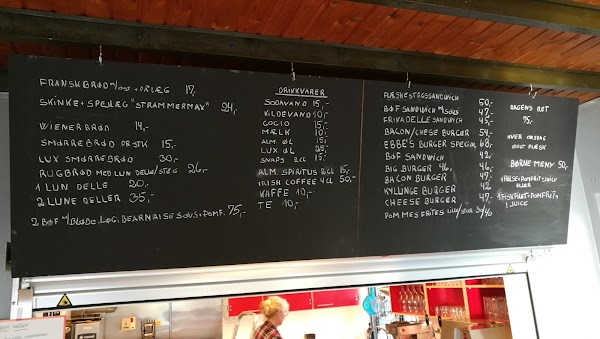 FRANSKBRØD M/OST + PÅLÆG 17,-
SKINKE + SPEJLÆG "STRAMMERMAX" 24,-
WIENERBRØD 14,-
SMØRREBRØD PR STK 15,-
LUX SMØRREBRØD 30,-
RUGBRØD MED LUN DELLE/STEG 26,-
1 LUN DELLE 20,-
2 LUNE DELLER 35,-
2 BØF M/BLØDE LØG, BEARNAISE SOVS + POMF. 75,-
DRIKKVARER
SODAVAND 15,-
KILDEVAND 10,-
COCIO 15,-
MÆLK 10,-
ALM. ØL 15,-
LUX ØL
SNAPS 2 CL 15,-
ALM. SPIRITUS 2 CL 15,-
IRISH COFFEE 4 CL 50,-
KAFFE 10,-
TE 10,-
FLÆSKESTEGSSANDWICH 50,-
BØF SANDWICH M/SOVS 47,-
FRIKADELLE SANDWICH 45,-
BACON/CHESE BURGER 54,-
EBBE'S BURGER SPECIAL 68,-
BØF SANDWICH 42,-
BIG BURGER 46,-
BACON BURGER 47,-
KYLLINGE BURGER 42,-
CHEESE BURGER 47,-
POMMES FRITES LILLE/STOR
DAGENS RET
75,-
HVER ONSDAG
STEGT FLÆSK
BØRNE MENU 50,-
1 PØLSE + POMFRIT, 1 JUICE
ELLER
1 FISKEFILET + POMFRIT +
1 JUICE